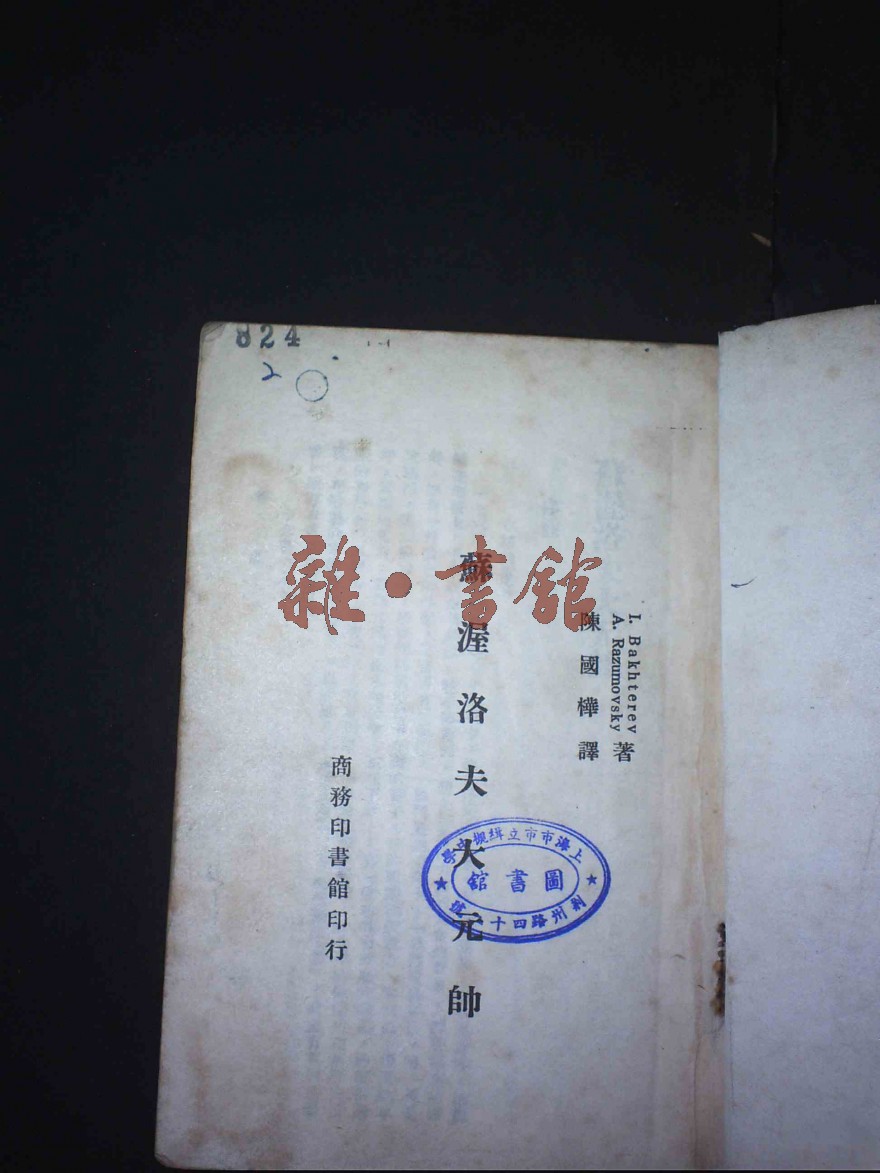 824
2
雜•書館
I. Bakhterev
A. Razumovsky 著
陳國樺譯
蘇渥洛夫大元帥
商務印書館印行
上海市市立緝槼中學
圖書館
荆州路四十號